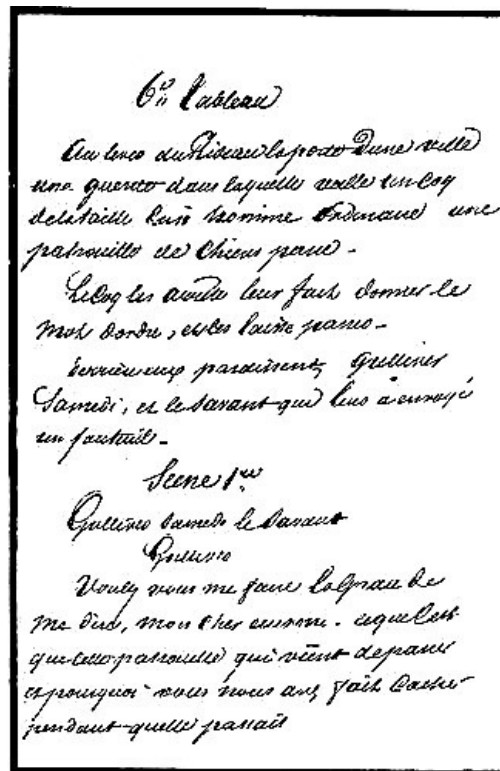 6e Tableau
Au lever du Rideau la porte Dune ville
une guerite dans laquelle veille un Coq
de la taille d'un homme Ordinaire une
patrouille de Chiens passe -
Le Coq les arrete leur fait donner le
Mot dordre, et les laisse passer -
derriere eux paraissent, Gulliver
Samedi, et le Savant qui leur à envoyé
un fauteuil -
Scene 1ere
Gulliver Samedi le Savant
Gulliver
Voulez vous me faire la Grace de
me dire, mon cher
que cette patrouille qui vient de passer
et pourquoi vous nous avez fait Cacher
pendant quelle passait